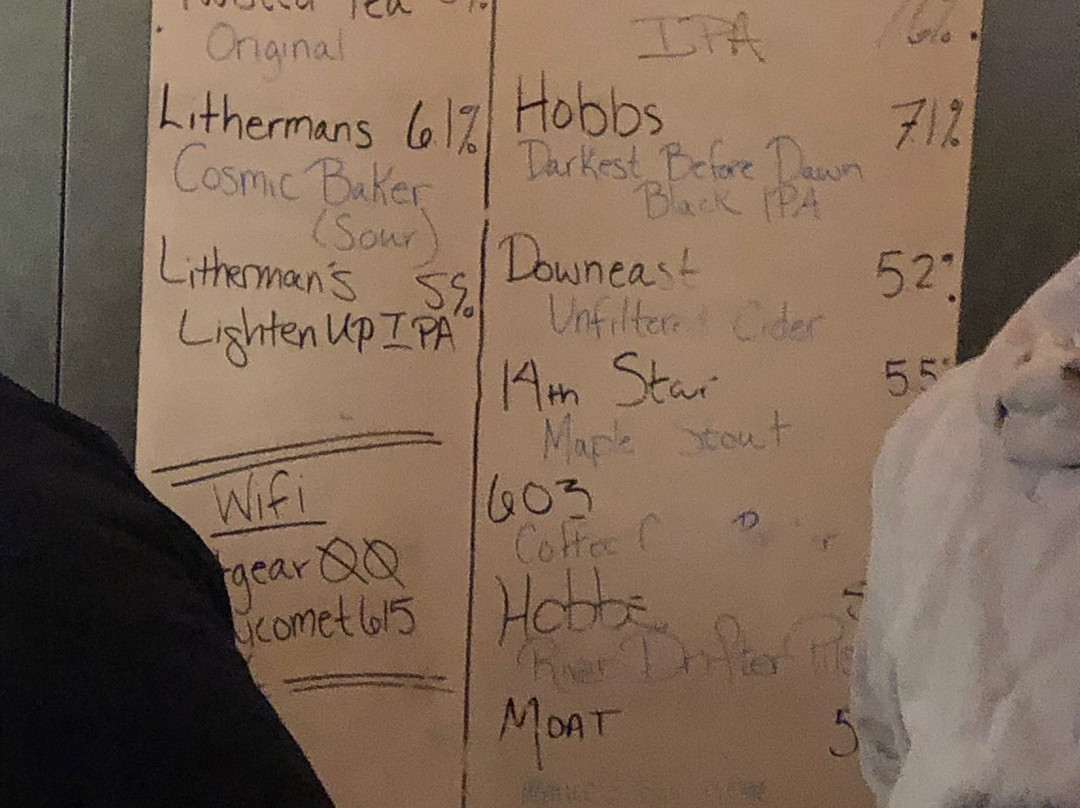 Tea
Original
Lithermans 6.1%
Cosmic Baker
(Sour)
Litherman's 5%
Lighten Up IPA
Wifi
tgear00
comet615
IPA
Hobbs 7.1%
Darkest Before Dawn
Black IPA
Downeast 52%
Unfiltered Cider
14th Star 55%
Maple Stout
603
Coffee
Hobbs
River Drifter
MOAT 5